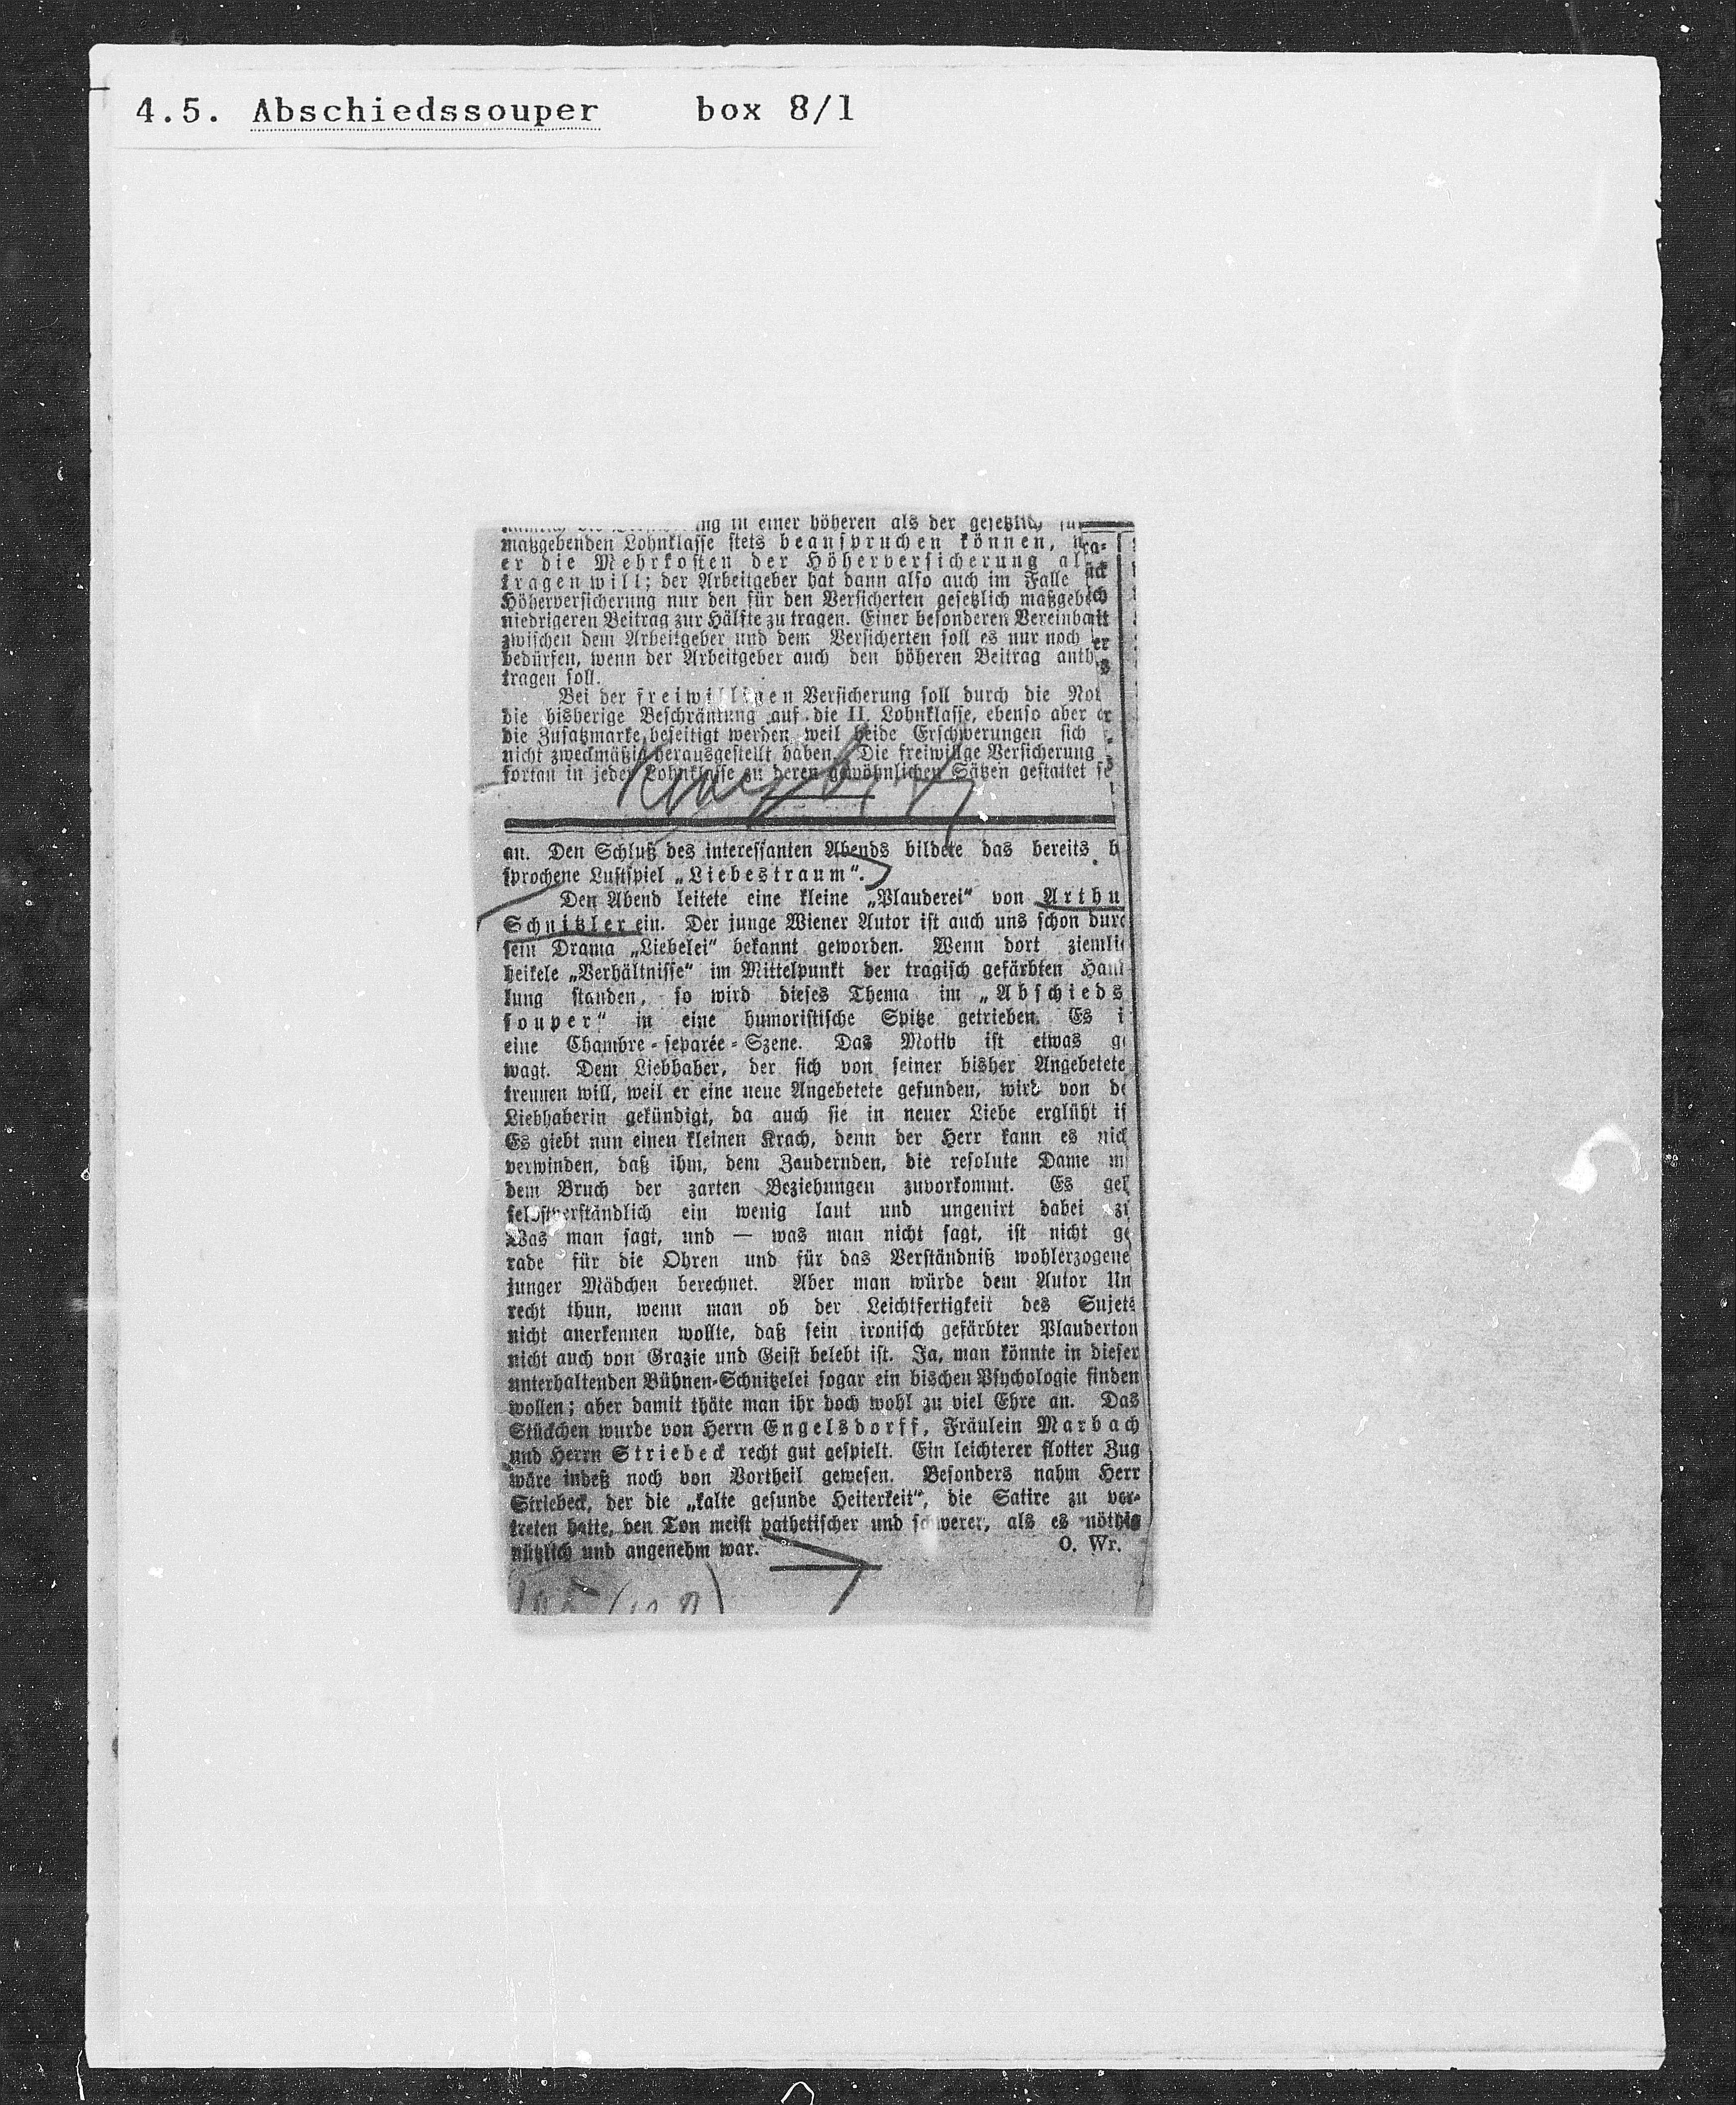 4.5. Abschiedssouper box 8/1
in einer höheren als der gesetzlich
maßgebenden Lohnklasse stets beanspruchen können,
er die Mehrkosten der Höherversicherung al
tragen will; der Arbeitgeber hat dann also auch im Falle
Höherversicherung nur den für den Versicherten gesetzlich maßgeb
niedrigeren Beitrag zur Hälfte zu tragen. Einer besonderen Vereinba
zwischen dem Arbeitgeber und dem Versicherten soll es nur noch
bedürfen, wenn der Arbeitgeber auch den höheren Beitrag anth
tragen soll.
Bei der freiwilligen Versicherung soll durch die Nov
die bisherige Beschränkung auf die II. Lohnklasse, ebenso aber
die Zusatzmarke beseitigt werden, weil beide Erschwerungen sich
nicht zweckmäßig herausgestellt haben. Die freiwillige Versicherung
fortan in jeder Lohnklasse zu deren gewöhnlichen Sätzen gestattet se
an. Den Schluß des interessanten Abends bildete das bereits b
sprochene Lustspiel „Liebestraum“.
Den Abend leitete eine kleine „Plauderei“ von Arthu
Schnitzler ein. Der junge Wiener Autor ist auch uns schon durc
sein Drama „Liebelei“ bekannt geworden. Wenn dort ziemlic
heikele „Verhältnisse“ im Mittelpunkt der tragisch gefärbten Hand
lung standen, so wird dieses Thema im „Abschieds
souper“ in eine humoristische Spitze getrieben. Es i
eine Chambre-separée-Szene. Das Motiv ist etwas ge
wagt. Dem Liebhaber, der sich von seiner bisher Angebetete
trennen will, weil er eine neue Angebetete gefunden, wird von de
Liebhaberin gekündigt, da auch sie in neuer Liebe erglüht is
Es giebt nun einen kleinen Krach, denn der Herr kann es nich
verwinden, daß ihm, dem Zaudernden, die resolute Dame m
dem Bruch der zarten Beziehungen zuvorkommt. Es geh
selbstverständlich ein wenig laut und ungenirt dabei zu
Was man sagt, und — was man nicht sagt, ist nicht ge
rade für die Ohren und für das Verständniß wohlerzogene
junger Mädchen berechnet. Aber man würde dem Autor Un
recht thun, wenn man ob der Leichtfertigkeit des Sujets
nicht anerkennen wollte, daß sein ironisch gefärbter Plauderton
nicht auch von Grazie und Geist belebt ist. Ja, man könnte in dieser
unterhaltenden Bühnen-Schnitzelei sogar ein bischen Psychologie finden
wollen; aber damit thäte man ihr doch wohl zu viel Ehre an. Das
Stückchen wurde von Herrn Engelsdorff, Fräulein Marbach
und Herrn Striebeck recht gut gespielt. Ein leichterer flotter Zug
wäre indeß noch von Vortheil gewesen. Besonders nahm Herr
Striebeck, der die „kalte gesunde Heiterkeit“, die Satire zu ver-
treten hatte, den Ton meist pathetischer und schwerer, als es nöthig
nützlich und angenehm war. O. Wr.